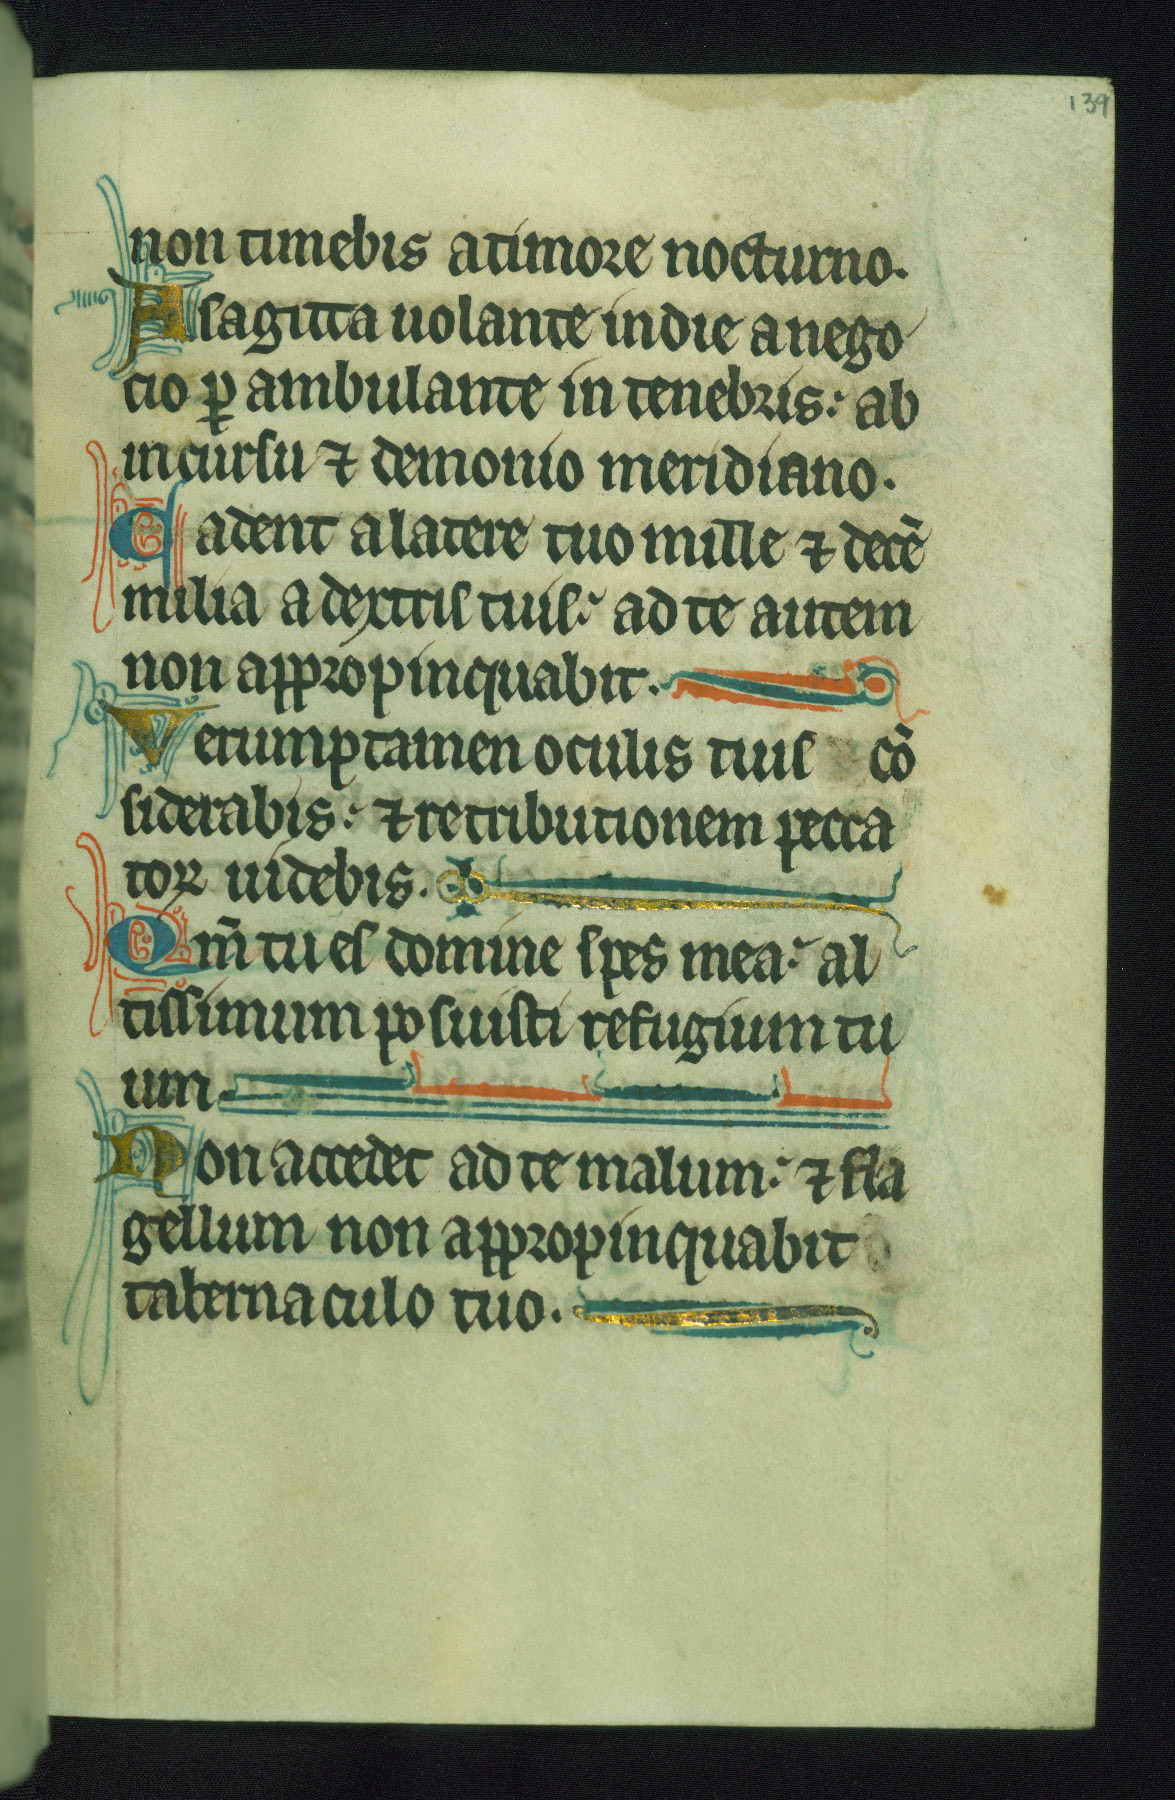 139
non timebis a timore nocturno.
A sagitta uolante in die a nego
cio ꝑ ambulante in tenebris: ab
incursu ⁊ demonio meridiano.
Cadent a latere tuo mille ⁊ decē
milia a dextris tuis: ad te autem
non appropinquabit.
Verumptamen oculis tuis cō
siderabis: ⁊ retributionem pecca
toꝝ uidebis.
Qm̄ tu es domine spes mea: al
tissimum posuisti refugium tu
um.
Non accedet ad te malum: ⁊ fla
gellum non appropinquabit
tabernaculo tuo.